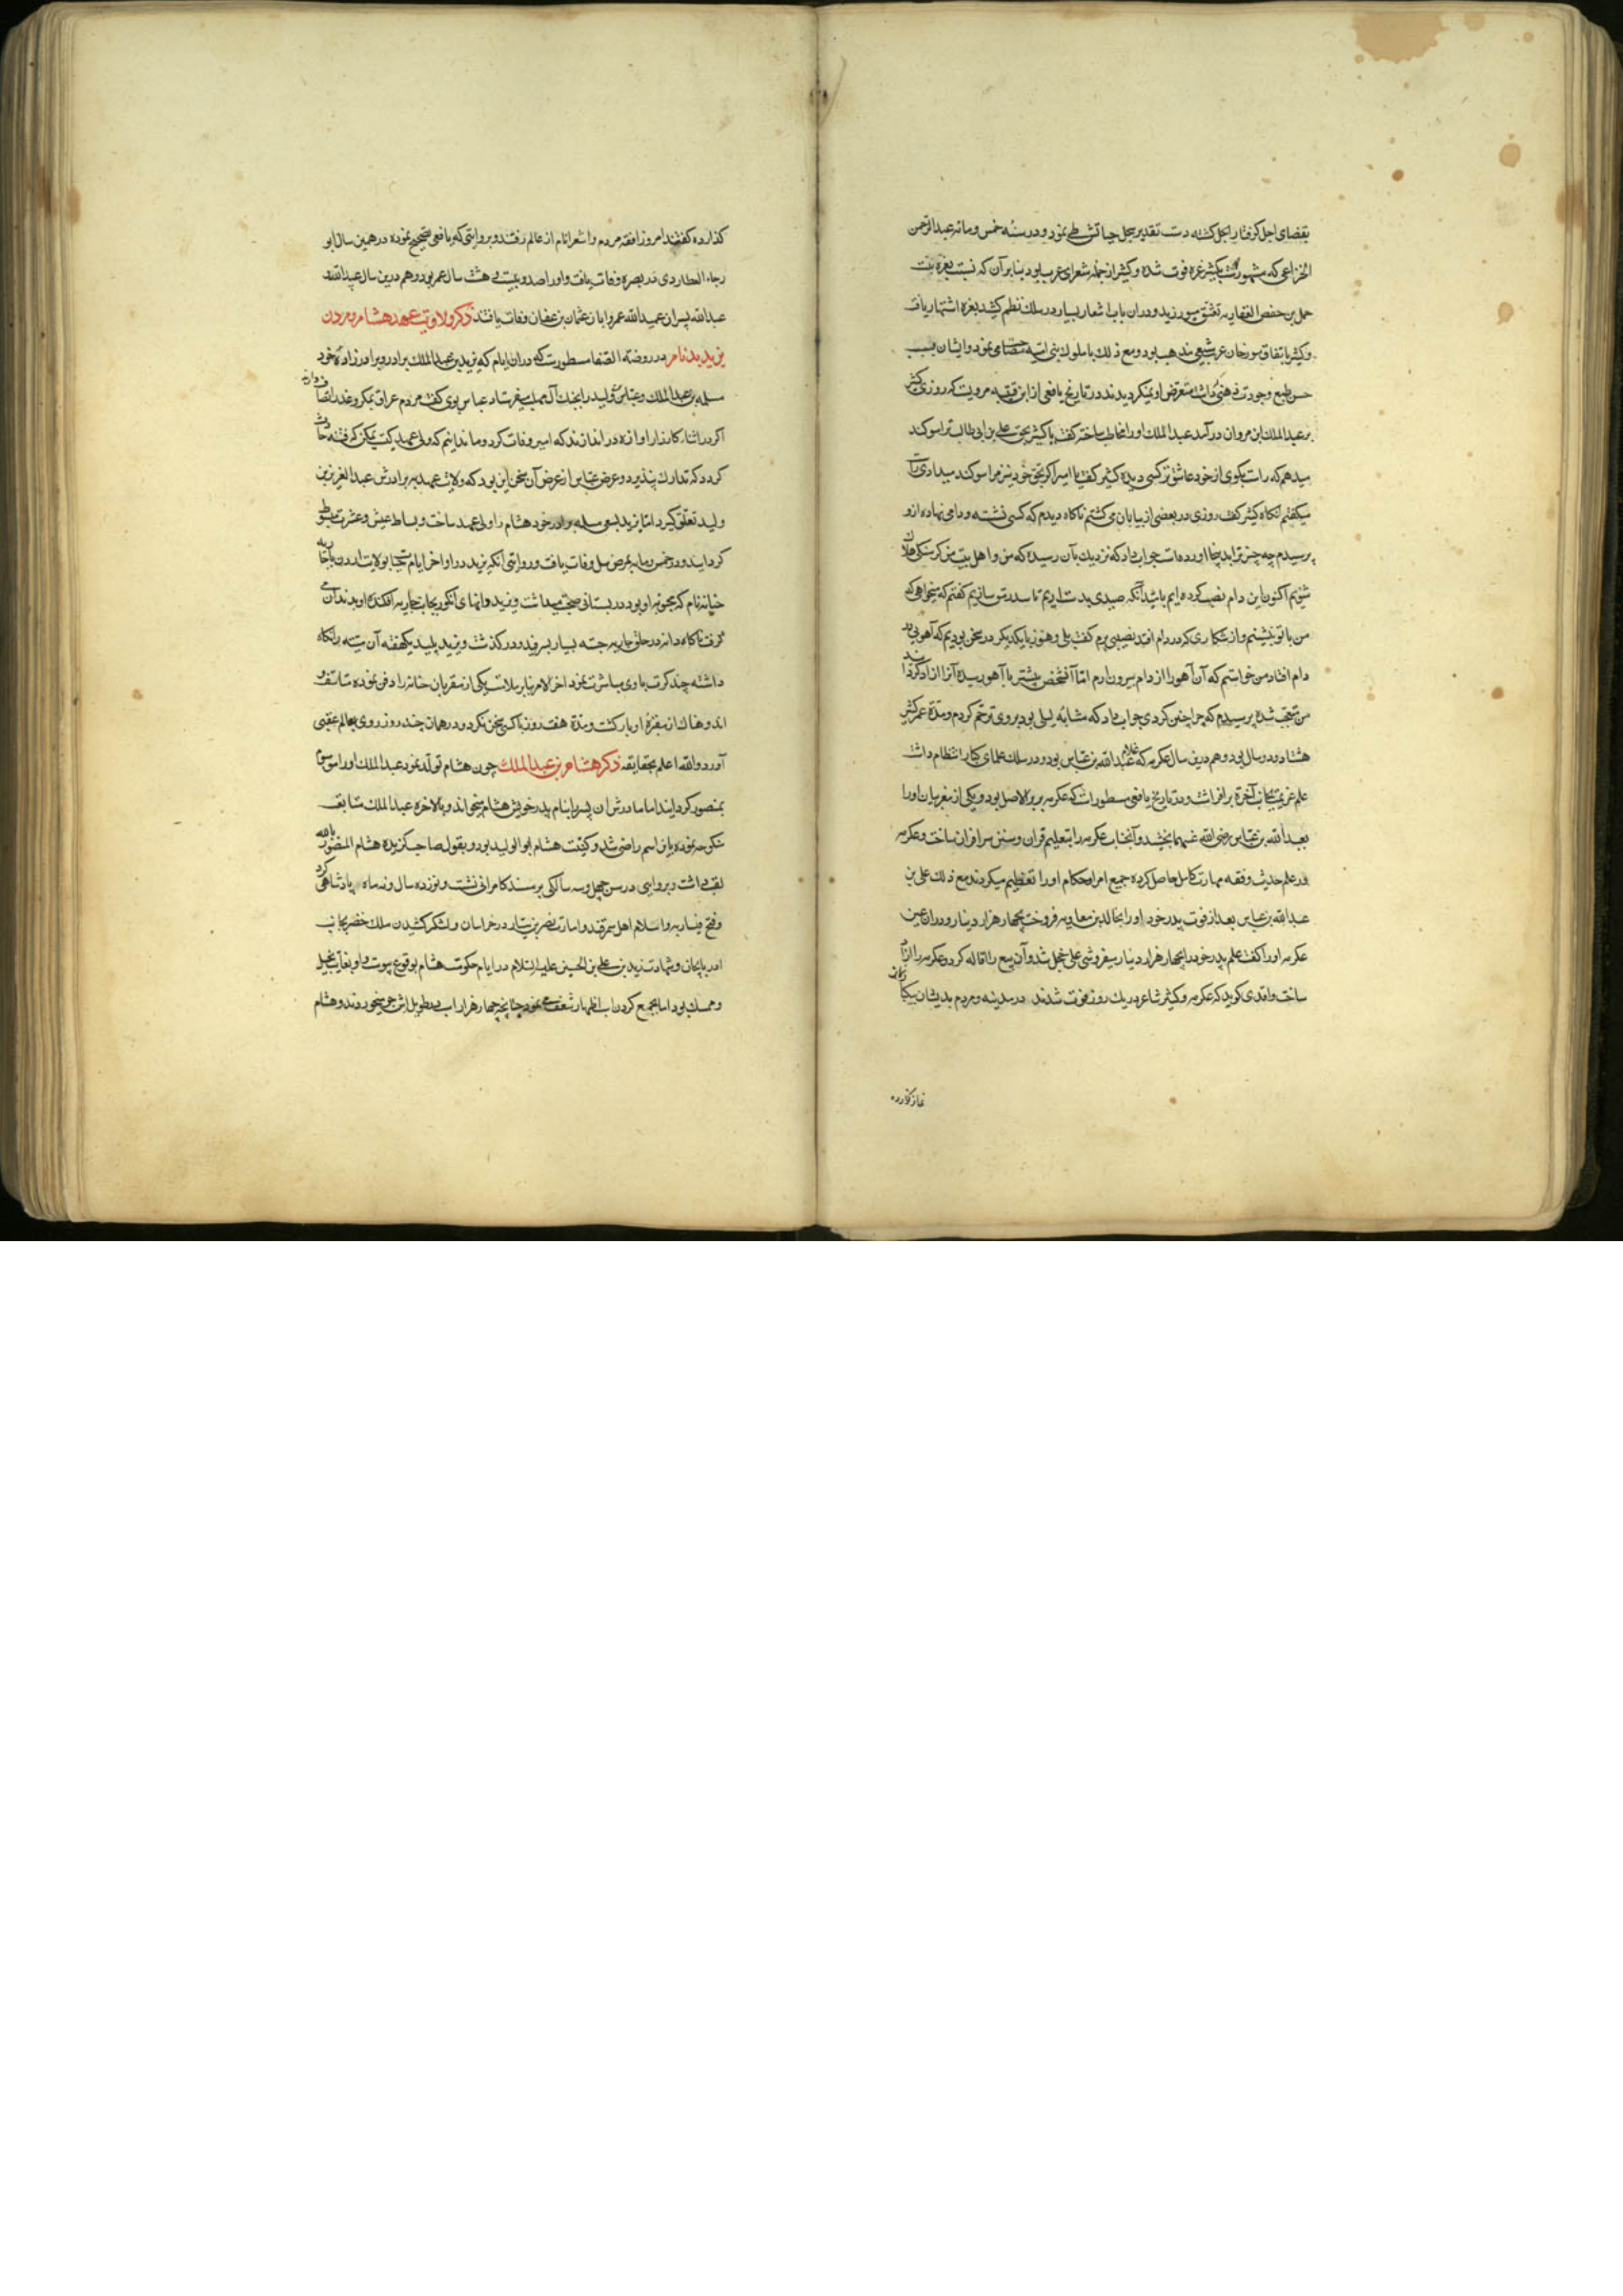 بقضای اجل گرفتار اجل گشته دست تقدیر سجل حیاتش طی نمود و در سنه خمس و مائه عبدالرحمن
الخزاعی که مشهورست بکثیر عزه فوت شده و کثیر از جمله شعرای عرب بود بنابر آن که نسبت بعزه بنت
حمل بن حفص الغفاریه تعشق میورزید و در ان باب اشعار بسیار در سلک نظم کشید بعزه اشتهار یافت
و کثیر باتفاق مورخان عرب شیعی مذهب بود و مع ذلک با ملوک بنی امیه می نمود و ایشان بسبب
حسن طبع وجودت ذهنی که داشت متعرض او نمیکردیدند در تاریخ یافعی از ابن قتیبه مرویست که روزی کثیر
بر عبدالملک ابن مروان در آمد عبدالملک او را مخاطب ساخته گفت یا کثیر بحق علی بن ابی طالب ترا سوکند
میدهم که راست بکوی از خود عاشق تر کسی دیده کثیر کفت یا امیر اکر بحق خود نیز مرا سوکند میدادی راست
میکفتم انکاه کثیر کفت روزی در بعضی از بیابان می کشتم ناکاه دیدم که کسی نشسته و دامی نهاده از و
پرسیدم چه چیز ترا اینجا آورده است جواب داد که نزدیک بآن رسیده که من و اهل بیت من از کرسنکی هلاک
شویم اکنون این دام نصب کرده ایم باشد آنکه صیدی بدست اریم تا سد رمق سازیم کفتم که میخواهی که
من با تو بنشینم و از شکاری که در دام افتد نصیبی برم کفت بلی و هنوز با یکدیکر در سخن بودیم که آهویی در
دام افتاد من خواستم که آن آهو را از دام بیرون ارم اما آن شخص پیشتر با آهو رسیده آنرا ازاد کردانید
من متعجب شده پرسیدم که چرا چنین کردی جواب داد که مشابه لیلی بود بر وی ترحم کردم و مدة عمر کثیر
هشتاد و دو سال بود و هم درین سال عکرمه که غلام عبدالله بن عباس بود و در سلک علمای کبار انتظام داشت
علم عزیمت بجانب آخرة بر افراشت و در تاریخ یافعی مسطورست که عکرمه بربر الاصل بود و یکی از مغربیان او را
بعبدالله بن عباس رضی الله عنهما بخشید و آنجناب عکرمه را بتعلیم قران و سنن سرافراز ساخت و عکرمه
در علم حدیث و فقه مهارت کامل حاصل کرده جمیع امرا و حکام او را تعظیم میکردند مع ذلک علی بن
عبدالله بن عباس بعد از فوت پدر خود او را بخالد بن معاویه فروخت بچهار هزار دینار و در ان حین
عکرمه او را کفت علم پدر خود را بچهار هزار دینار میفروشی علی خجل شد و آن بیع را اقاله کرد و عکرمه را ازاد
ساخت واقدی کوید که عکرمه و کثیر شاعر در یک روز فوت شدند در مدینه و مردم بدیشان بیکبار نماز
نماز کذارده
کذارده کفتند امروز افقه مردم و اشعر انام از عالم رفتند و بروایتی که یافعی تصحیح نموده در همین سال ابو
رجاء العطاردی در بصره وفات یافت و او را صد و بیست و هشت سال عمر بود و هم درین سال عبیدالله و
عبدالله پسران عبدالله عمر و ابان عثمان بن عفان وفات یافتند ذکر ولایت عهد هشام و مردن
یزید بدنام در روضة الصفا مسطورست که دران ایام که یزید بن عبدالملک برادر و برادر زاده خود
مسلمه بن عبدالملک و عباس ولید را بجنک آل مهلب میفرستاد عباس بوی کفت مردم عراق بمکر و غدر اتصاف دارند
اکر در اثناء کارزار اوازه در اندازند که امیر وفات کرد و ما ندانیم که ولی عهد کیست یمکن که فتنه حادث
کردد که تدارک نپذیرد و غرض عباس از عرض آن سخن این بود که ولایت عهد به برادرش عبدالعزیز بن
ولید تعلق کیرد اما یزید بسعی مسلمه برادر خود هشام را ولی عهد ساخت و بساط عیش و عشرت مبسوط
کردانید و در خمس و مایه بمرض سل وفات یافت و روایتی آنکه یزید در اواخر ایام حیات بولایت اردن با جاریه
حبابه نام که محبوبه او بود در بستانی صحبت میداشت و یزید دانهای انکور بجانب جاریه افکنده او بدندان می
کرفت ناکاه دانه در حلق جاریه جسته بسیار بسرفید و درکذشت و یزید پلید یکهفته آن میته را نکاه
داشته چند کرت با وی مباشرت نمود اخر الامر بنابر ملامت یکی از مقربان حبابه را دفن نموده متاسف و
اندوهناک از مقبرهٔ او بازکشت و مدة هفت روز با کس سخن نکرد و در همان چند روز روی بعالم عقبی
آورد والله اعلم بحقایقه ذکر هشام بن عبدالملک چون هشام تولد نمود عبدالملک او را موسوم
بمنصور کردانید اما مادرش ان پسر را بنام پدر خویش هشام میخواند و بالاخره عبدالملک متابعت
منکوحه نموده بان اسم راضی شد و کنیت هشام ابوالولید بود و بقول صاحب کزیده هشام المنصور بالله
لقب داشت و بروایتی در سن چهل و سه سالکی بر مسند کامرانی نشست و نوزده سال و نه ماه پادشاهی کرد
و فتح و اسلام اهل سمرقند و امارت نصر بن سیار در خراسان و لشکر کشیدن ملک خضر بجانب
اذربایجان و شهادت زید بن علی بن الحسین علیه السلام در ایام حکومت هشام بوقوع پیوست و او بغایت بخیل
و ممسک بود اما بجمع کردن اسب اظهار شعف می نمود چنانچه چهار هزار اسب در طویل اش جو میخوردند و هشام